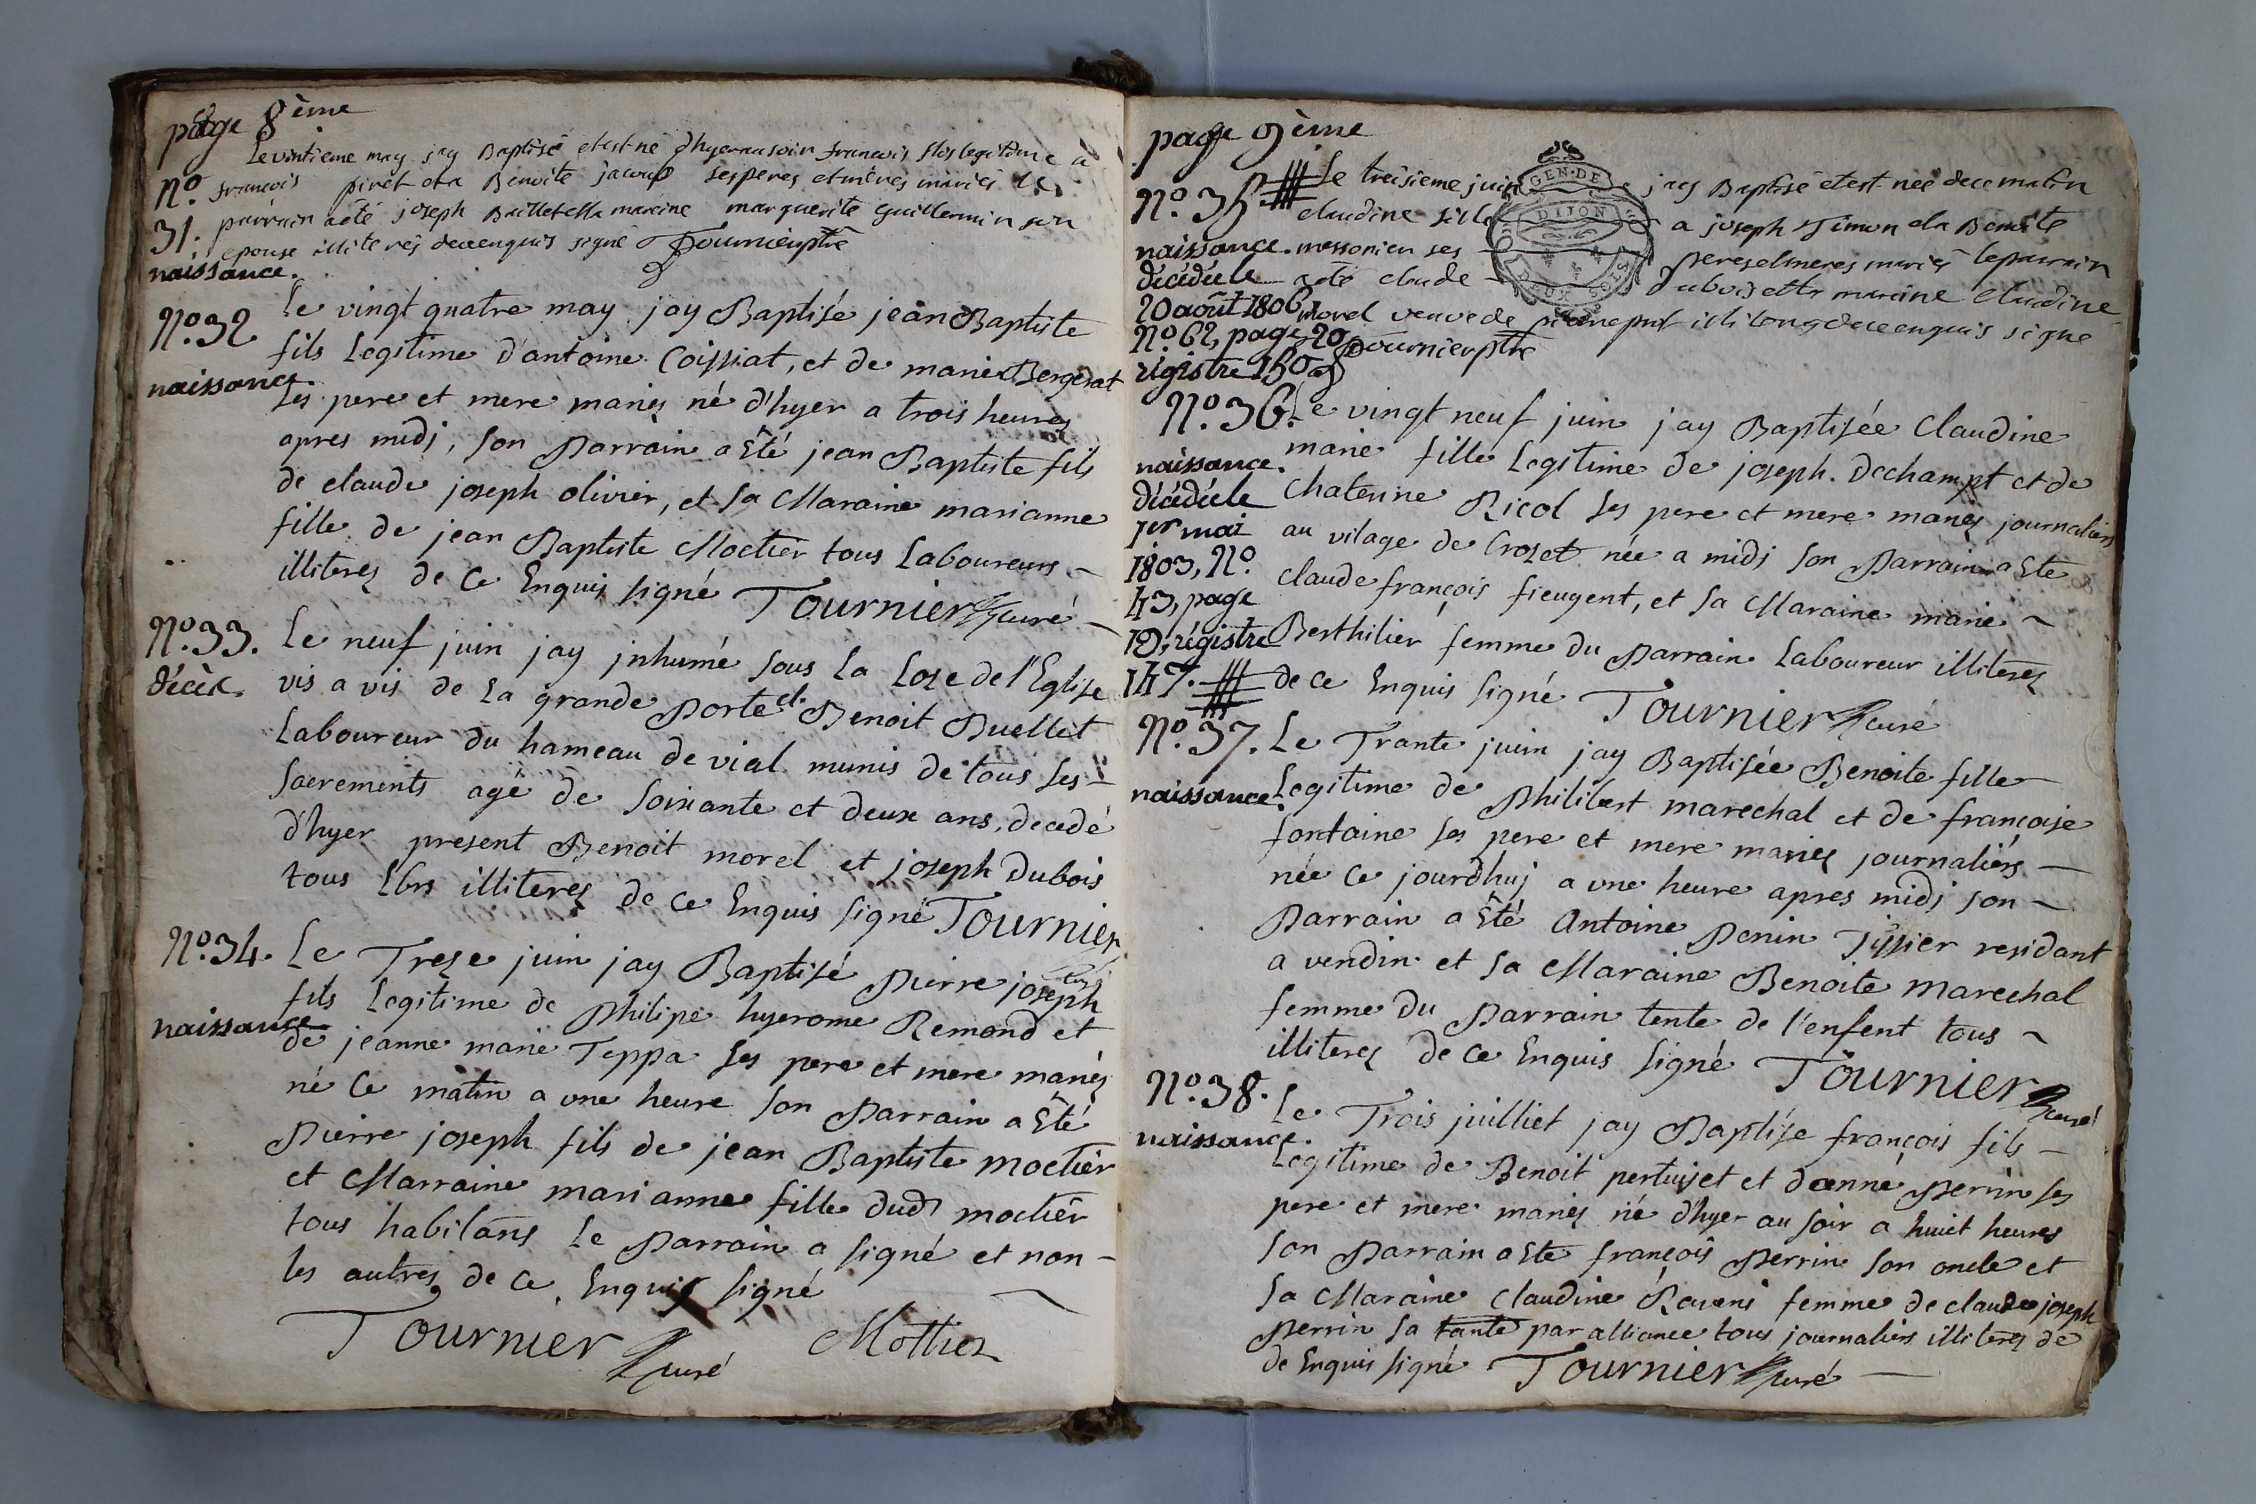 page 8ème
Le vintieme may jay Baptisé etest né dhyerausoir francois fils legitime a
françois piret eta Benoite jacoud sesperes etmères mariés le
parrain aété joseph Buillet etla maraine marguerite Guillermin son
epouse illiterés decceenquis signé Tournier ptre
N.º
31.
naissance.
N.º 32
naissance.
Le vingt quatre may jay Baptisé jean Baptiste
fils Legitime d'antoine Coissiat, et de marie Bergerat
ses pere et mere mariés né d'hyer a trois heures
apres midj, son Parrain a Eté jean Baptiste fils
de claude joseph olivier, et sa Maraine marianne
fille de jean Baptiste Moctier tous Laboureurs
illiterez de ce Enquis signé Tournier curé
N.º 33.
décès.
Le neuf juin jay jnhumé sous la Loze de l'Eglise
vis a vis de la grande Porte d. Benoit Buellet
Laboureur du hameau de vial munis de tous ses
sacrements agé de soixante et deux ans, decedé
d'hyer present Benoit morel et joseph Dubois
tous Lbrs illiterez de ce Enquis signé Tournier
curé
N.º 34.
naissance
Le Treze juin jay Baptisé Pierre joseph
fils Legitime de Philipe hyerome Remond et
de jeanne marie Teppa ses pere et mere mariés
né ce matin a une heure son Parrain a Eté
Pierre joseph fils de jean Baptiste moctier
et Marraine marianne fille dud moctier
tous habitans le Parrain a signé et non
les autres de ce Enquis signé
Tournier curé Mottier
page 9ème
N.º 35
naissance.
décédée le
20 août 1806
N.º 62, page 20
régistre 150
Le treisieme juin jay Baptisé etest née dece matin
claudine fille a joseph Timon eta Benoite
messonien ses peresetmeres mariés leparrain
aété claude Dubois etla maraine Claudine
Morel veuve de illi decceenquis signe
Tournier ptre
N.º 36.
naissance.
décédée le
1er mai
1803, N.º
43, page
19, régistre
147.
Le vingt neuf juin jay Baptisée Claudine
marie fille Legitime de joseph. Dechampt et de
Chaterine Ricol ses pere et mere mariés journaliers
au vilage de Crozet née a midj son Parrain a Eté
claude françois fieugent, et sa Maraine marie
Berthilier femme du Parrain Laboureur illiterez
de ce Enquis signé Tournier curé
N.º 37.
naissance.
Le Trante juin jay Baptisée Benoite fille
Legitime de Philibert marechal et de françoise
fontaine ses pere et mere mariez journaliérs
née ce jourdhuj a une heure apres midj son
Parrain a Eté Antoine Penin Tissier residant
a vendin et sa Maraine Benoite marechal
femme du Parrain tente de l'enfent tous
illiterez de ce Enquis signé Tournier curé
N.º 38.
naissance.
Le Trois juilliet jay Baptise françois fils
Legitime de Benoit pertuiset et d'anne Perrin ses
pere et mere mariez né d'hyer au soir a huiet heures
son Parrain a Eté françois Perrin son oncle et
sa Maraine Claudine Raveni femme de claude joseph
Perrin sa tante par alliance tous journaliérs illiterez de
de Enquis signé Tournier curé
GEN. DE
DIJON
DEUX SOLS